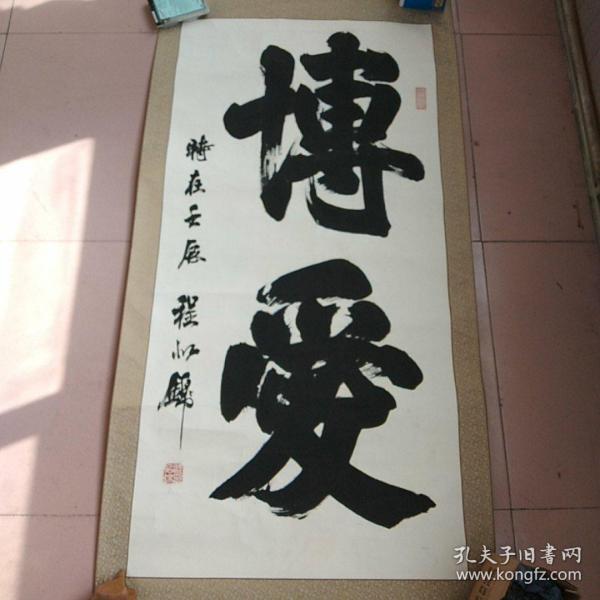 博愛
時在壬辰 程
孔夫子旧書网
www.kongfz.com